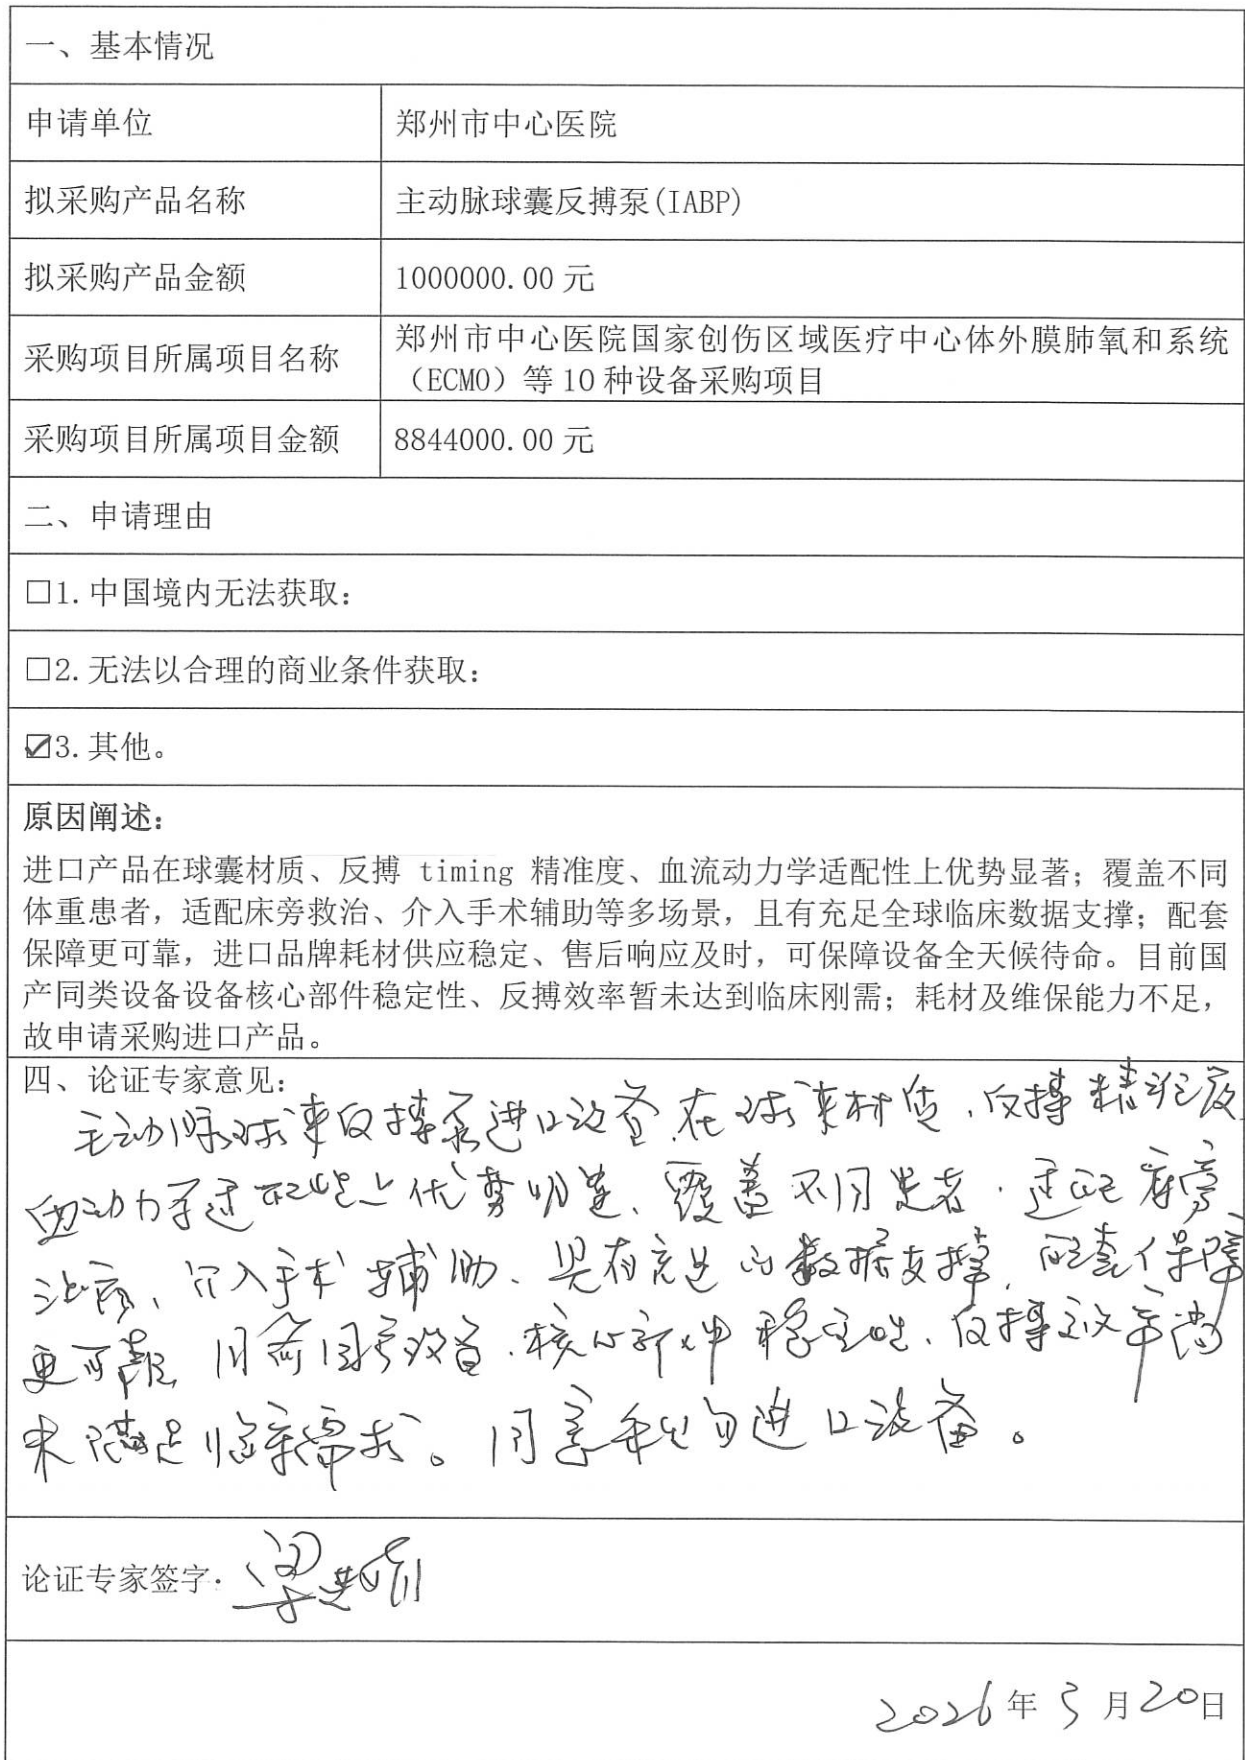 一、基本情况
申请单位
郑州市中心医院
拟采购产品名称
主动脉球囊反搏泵(IABP)
拟采购产品金额
1000000.00 元
采购项目所属项目名称
郑州市中心医院国家创伤区域医疗中心体外膜肺氧和系统
（ECMO）等 10 种设备采购项目
采购项目所属项目金额
8844000.00 元
二、申请理由
□1.中国境内无法获取：
□2.无法以合理的商业条件获取：
☑3.其他。
原因阐述：
进口产品在球囊材质、反搏 timing 精准度、血流动力学适配性上优势显著；覆盖不同
体重患者，适配床旁救治、介入手术辅助等多场景，且有充足全球临床数据支撑；配套
保障更可靠，进口品牌耗材供应稳定、售后响应及时，可保障设备全天候待命。目前国
产同类设备设备核心部件稳定性、反搏效率暂未达到临床刚需；耗材及维保能力不足，
故申请采购进口产品。
四、论证专家意见：
主动脉球囊反搏泵进口设备在球囊材质、反搏精准度
血动力学适配性上优势明显、覆盖不同患者、适配床旁
治疗、介入手术辅助、具有充足的数据支撑，配套保障
更可靠，目前国产设备核心部件稳定性、反搏效率尚
未满足临床需求。同意采购进口设备。
论证专家签字：梁
2026年3月20日